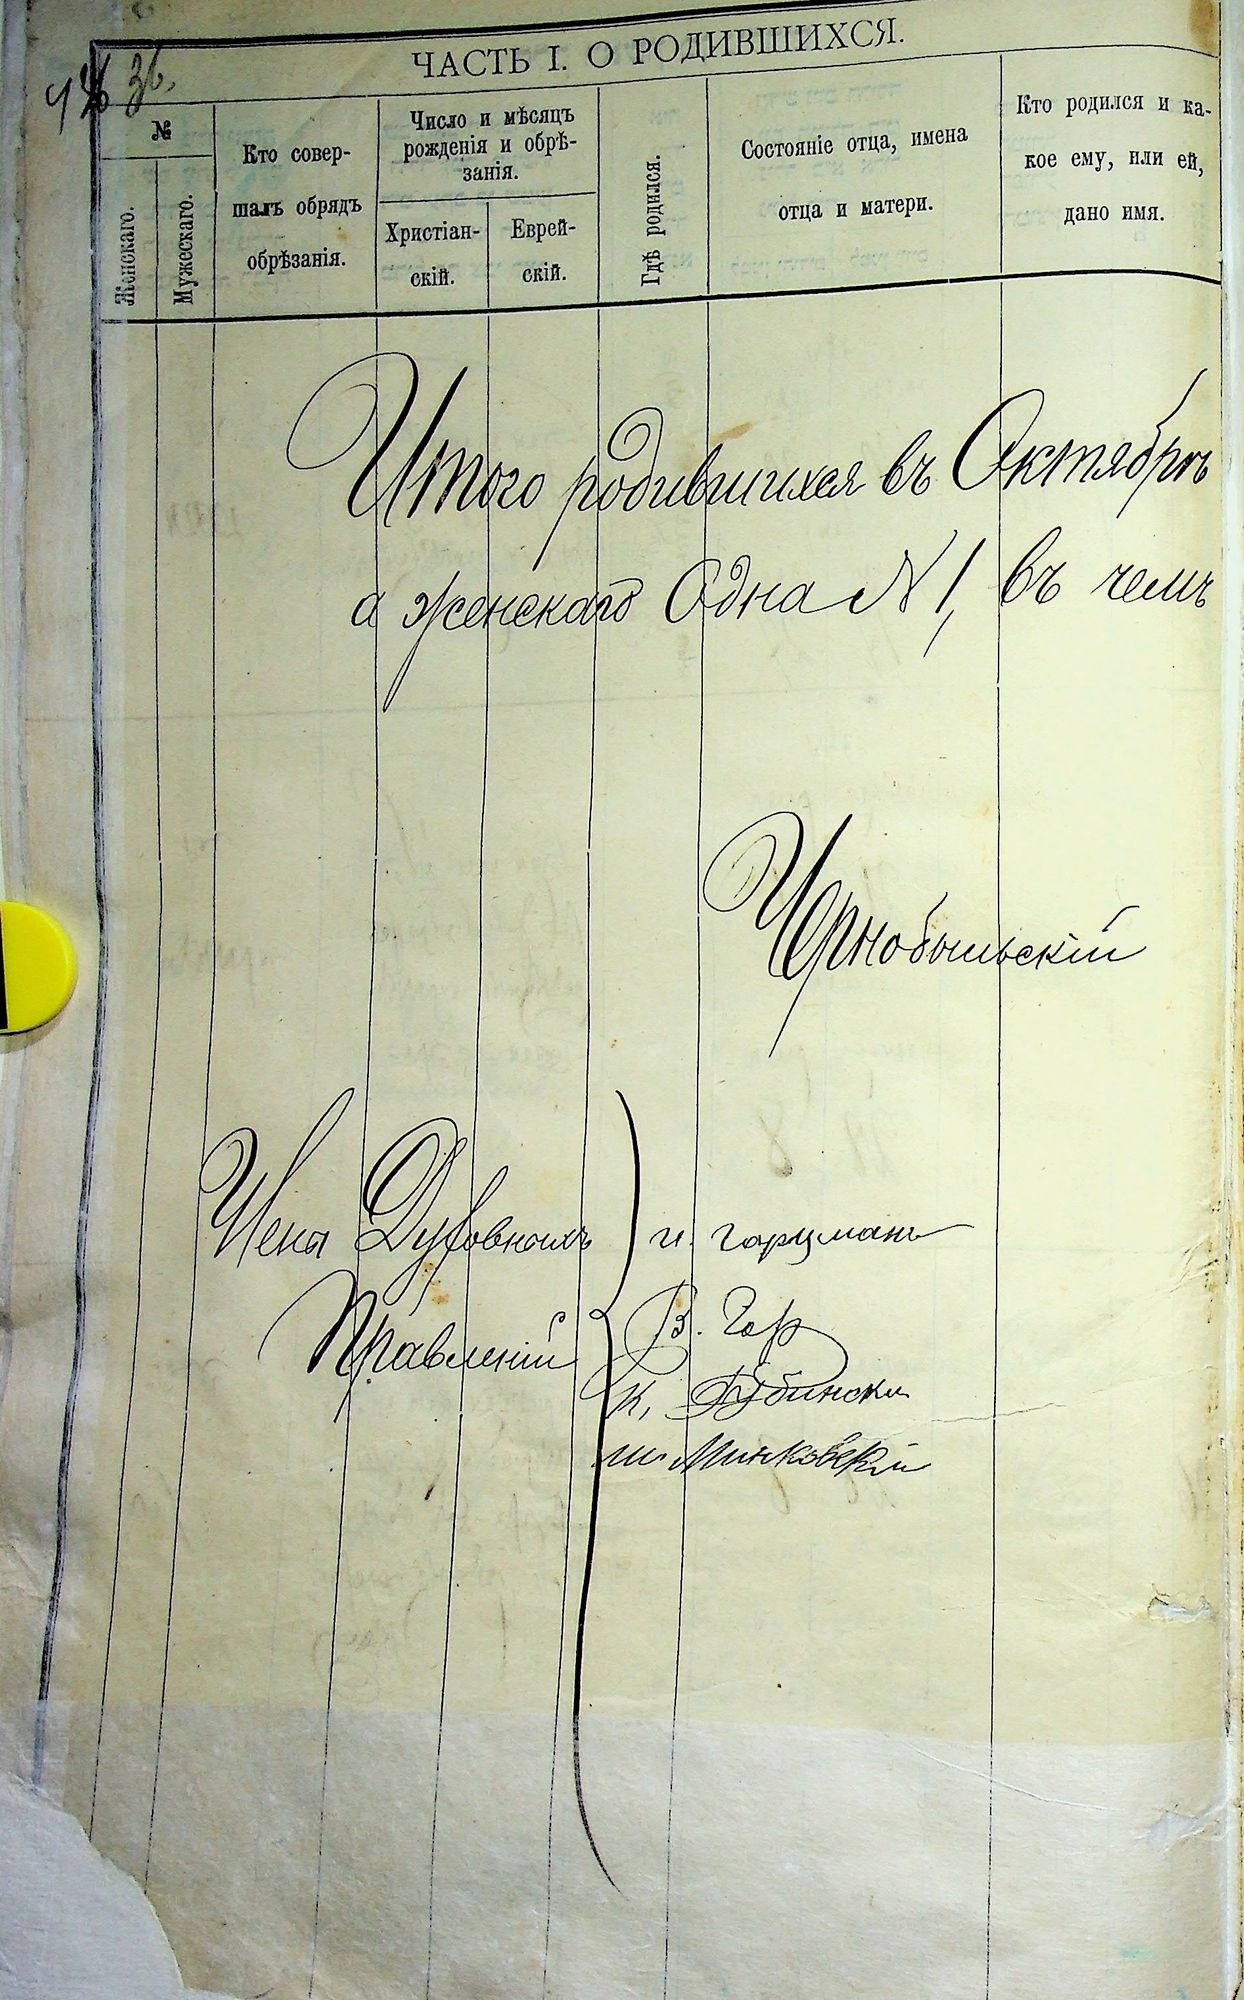 36.
ЧАСТЬ I. О РОДИВШИХСЯ.
№
Женскаго.
Мужескаго.
Кто совер-
шалъ обрядъ
обрѣзанія.
Число и мѣсяцъ
рожденія и обрѣ-
занія.
Христіан-
скій.
Еврей-
скій.
Гдѣ родился.
Состояніе отца, имена
отца и матери.
Кто родился и ка-
кое ему, или ей,
дано имя.
Итого родившихся въ Октябрѣ
а женскаго Одна N 1, въ чемъ
Чернобыльскій
Духовнаго
Правленія
В. Гор
К.
Ш. Минковскій